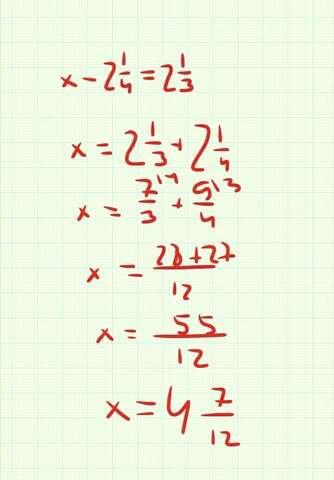 x - 2 1/4 = 2 1/3
x = 2 1/3 + 2 1/4
x = 7/3 ^14 + 9/4 ^13
x = 28+27/12
x = 55/12
x = 4 7/12